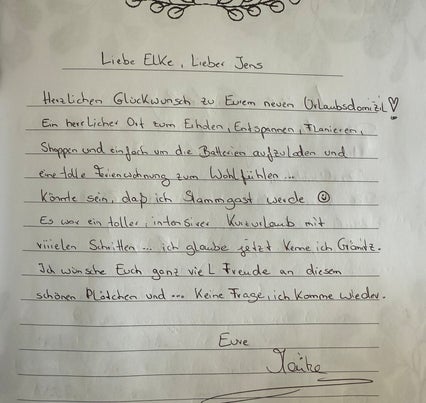 Liebe Elke, Lieber Jens
Herzlichen Glückwunsch zu Eurem neuen Urlaubsdomizil
Ein herrlicher Ort zum Erholen, Entspannen, Flanieren,
Shoppen und einfach um die Batterien aufzuladen und
eine tolle Ferienwohnung zum Wohlfühlen ...
Könnte sein, daß ich Stammgast werde ☺
Es war ein toller, intensiver Kurzurlaub mit
viiielen Schritten ... ich glaube jetzt kenne ich Grömitz.
Ich wünsche Euch ganz viel Freude an diesem
schönen Plätzchen und ... Keine Frage, ich komme wieder.
Eure